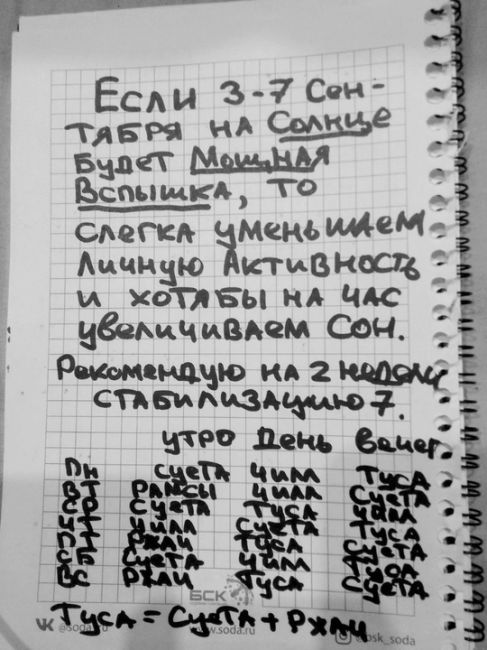 Если 3-7 Сен-
тября на Солнце
будет Мощная
Вспышка, то
слегка уменьшаем
личную активность
и хотябы на час
увеличиваем Сон.
Рекомендую на 2 недели
стабилизацию 7.
утро День вечер
Пн суета чилл Туса
ВТ Рамсы чилл Суета
СР Суета Туса чилл
ЧТ чилл Суета Туса
ПТ Ржач Туса Суета
СБ Суета чилл Туса
ВС Ржач Туса Суета
БСК
Туса = Суета + Ржач
@soda.ru www.soda.ru @bsk_soda